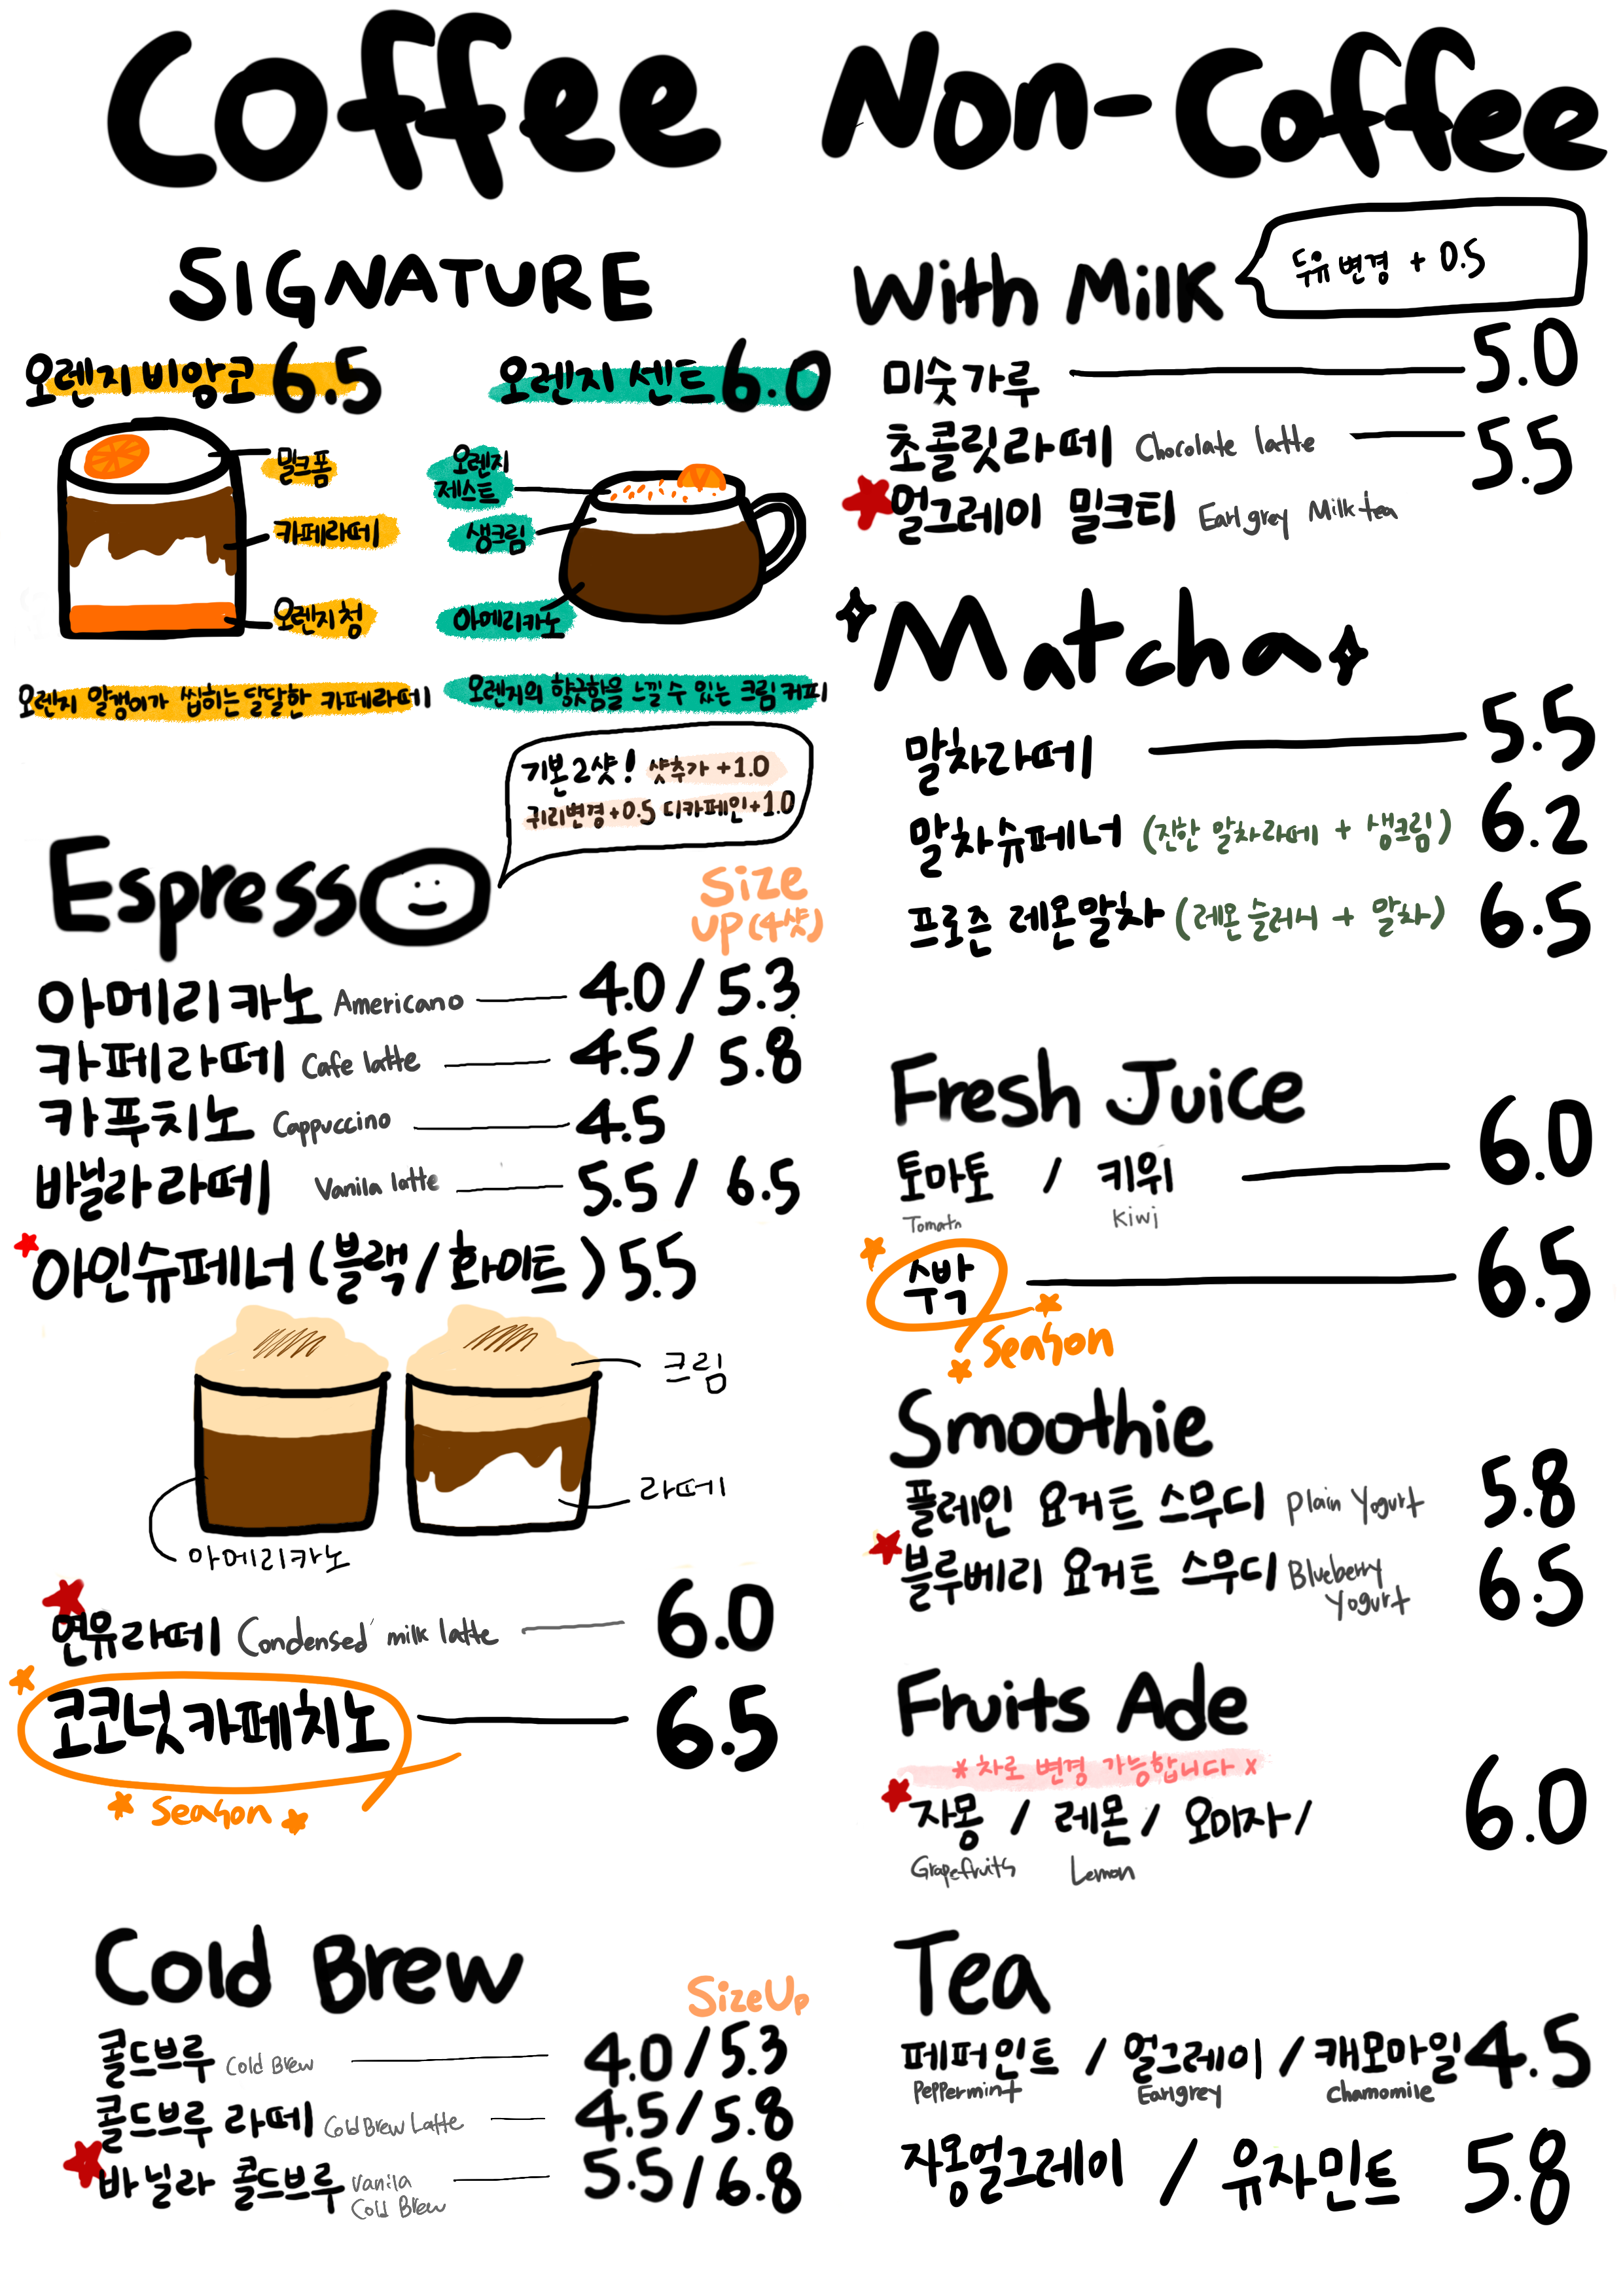 Coffee
SIGNATURE
오렌지 비앙코 6.5
밀크폼
카페라떼
오렌지청
오렌지 알갱이가 씹히는 달달한 카페라떼
오렌지 센트 6.0
오렌지
제스트
생크림
아메리카노
오렌지의 향긋함을 느낄 수 있는 크림커피
기본2샷! 샷추가 +1.0
귀리변경+0.5 디카페인+1.0
Espresso
Size
UP(4샷)
아메리카노 Americano 4.0 / 5.3
카페라떼 Cafe latte 4.5 / 5.8
카푸치노 Cappuccino 4.5
바닐라라떼 Vanila latte 5.5 / 6.5
아인슈페너 (블랙/화이트) 5.5
크림
라떼
아메리카노
연유라떼 Condensed milk latte 6.0
코코넛카페치노 6.5
Season
Cold Brew
SizeUp
콜드브루 Cold Brew 4.0 / 5.3
콜드브루 라떼 Cold Brew Latte 4.5 / 5.8
바닐라 콜드브루 Vanila Cold Brew 5.5 / 6.8
Non-Coffee
With Milk
두유변경 + 0.5
미숫가루 5.0
초콜릿라떼 Chocolate latte 5.5
얼그레이 밀크티 Earl grey Milk tea
Matcha
말차라떼 5.5
말차슈페너 (진한 말차라떼 + 생크림) 6.2
프로즌 레몬말차 (레몬슬러시 + 말차) 6.5
Fresh Juice
토마토 / 키위 6.0
Tomato Kiwi
수박 6.5
Season
Smoothie
플레인 요거트 스무디 Plain Yogurt 5.8
블루베리 요거트 스무디 Blueberry Yogurt 6.5
Fruits Ade
*차로 변경 가능합니다*
자몽 / 레몬 / 오미자 / 6.0
Grapefruits Lemon
Tea
페퍼민트 / 얼그레이 / 캐모마일 4.5
Peppermint Earlgrey Chamomile
자몽얼그레이 / 유자민트 5.8